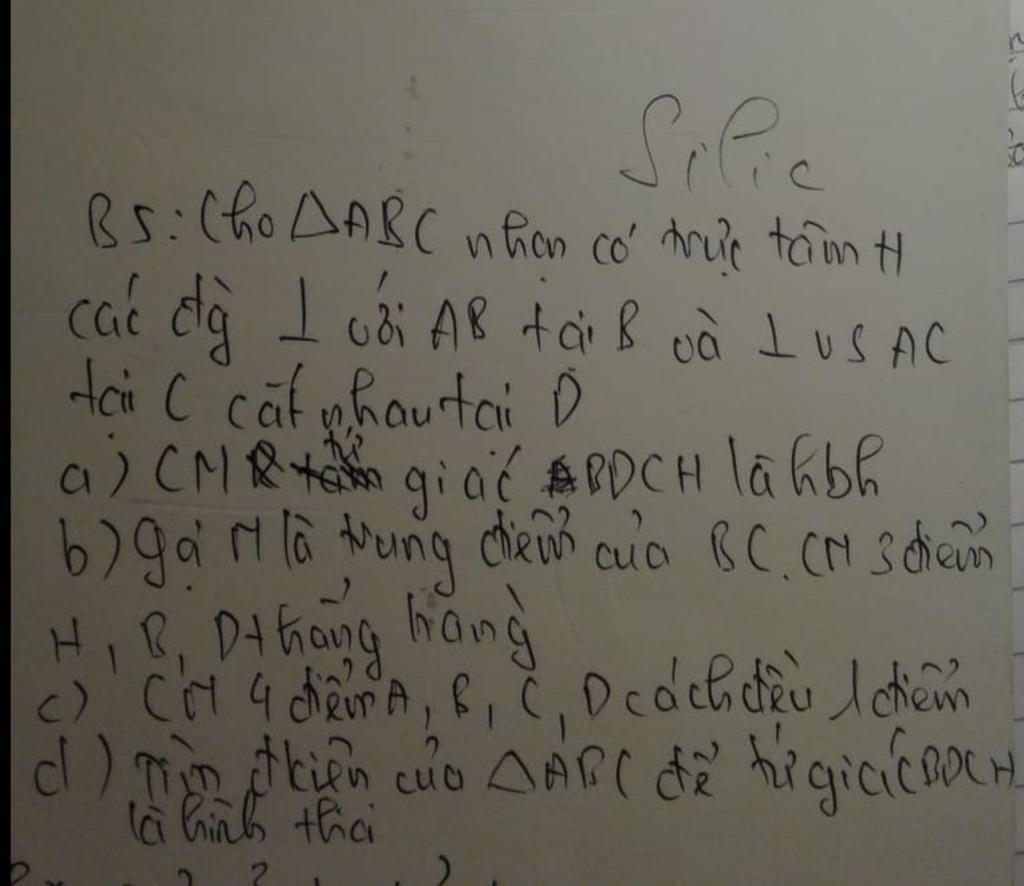 Silic
B5: Cho △ABC nhọn có trực tâm H
các đg ⊥ với AB tại B và ⊥ vs AC
tại C cắt nhau tại D
a) CM tứ giác BDCH là hbh
b) gọi M là trung điểm của BC. CM 3 điểm
H, B, D thẳng hàng
c) CM 4 điểm A, B, C, D cách đều 1 điểm
d) Tìm đkiện của △ABC để tứ giác BDCH
là hình thoi